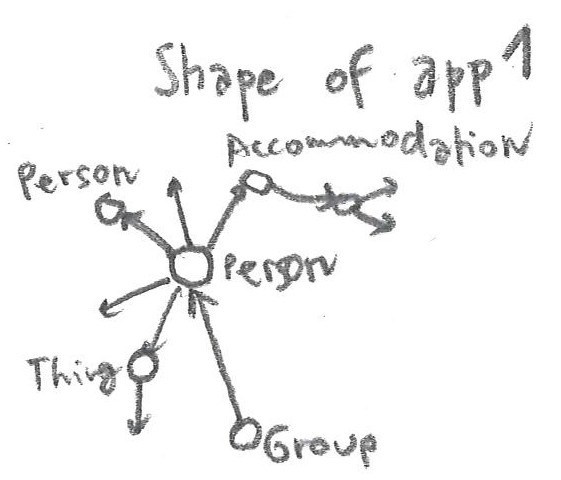 Shape of app 1
Accommodation
Person
Person
Thing
Group